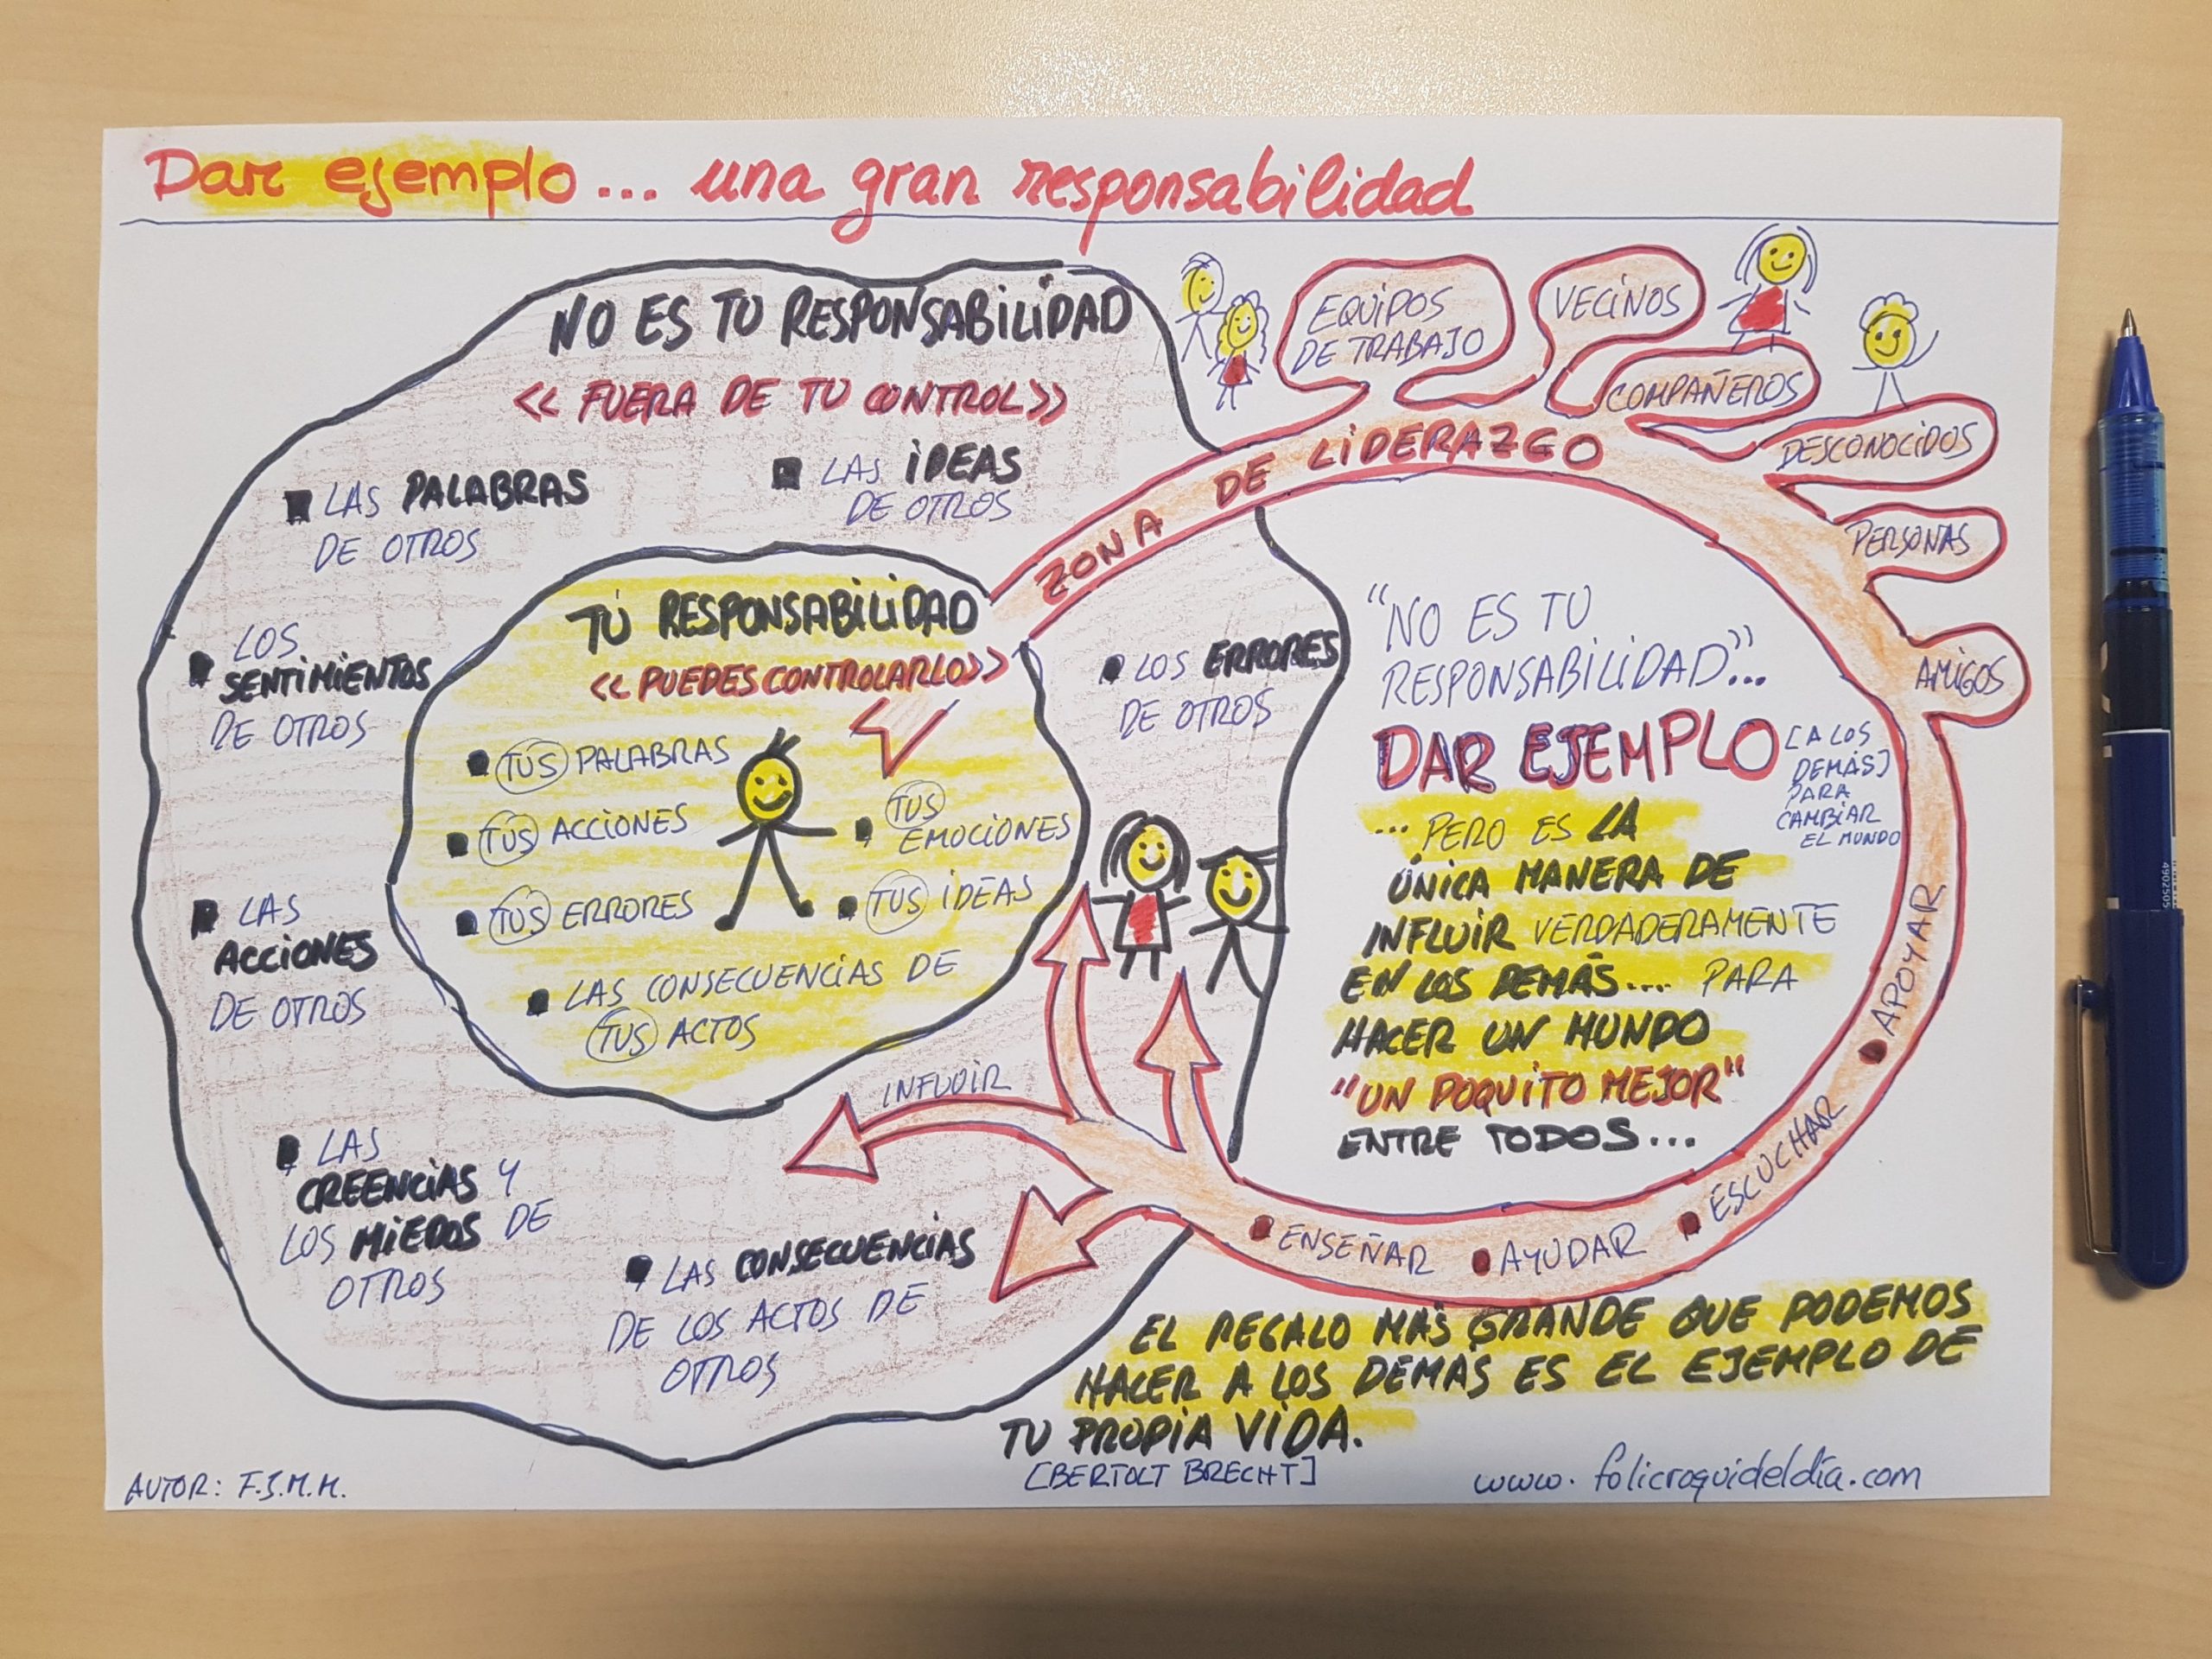 Dar ejemplo... una gran responsabilidad
NO ES TU RESPONSABILIDAD
<< FUERA DE TU CONTROL >>
LAS PALABRAS
DE OTROS
LAS IDEAS
DE OTROS
LOS
SENTIMIENTOS
DE OTROS
LAS
ACCIONES
DE OTROS
LAS
CREENCIAS Y
LOS MIEDOS DE
OTROS
LAS CONSECUENCIAS
DE LOS ACTOS DE
OTROS
LOS ERRORES
DE OTROS
TÚ RESPONSABILIDAD
<< PUEDES CONTROLARLO >>
TUS PALABRAS
TUS ACCIONES
TUS ERRORES
TUS
EMOCIONES
TUS IDEAS
LAS CONSECUENCIAS DE
TUS ACTOS
INFLUIR
ZONA DE LIDERAZGO
EQUIPOS
DE TRABAJO
VECINOS
COMPAÑEROS
DESCONOCIDOS
PERSONAS
AMIGOS
APOYAR
ESCUCHAR
AYUDAR
ENSEÑAR
"NO ES TU
RESPONSABILIDAD"...
DAR EJEMPLO
[A LOS
DEMÁS]
PARA
CAMBIAR
EL MUNDO
... PERO ES LA
ÚNICA MANERA DE
INFLUIR VERDADERAMENTE
EN LOS DEMÁS... PARA
HACER UN MUNDO
"UN POQUITO MEJOR"
ENTRE TODOS...
EL REGALO MÁS GRANDE QUE PODEMOS
HACER A LOS DEMÁS ES EL EJEMPLO DE
TU PROPIA VIDA.
[BERTOLT BRECHT]
AUTOR: F.J.M.M.
www.folicroquideldía.com